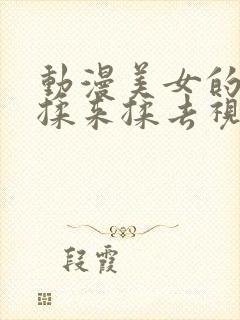 動漫美女的
揉来揉去視
段霞